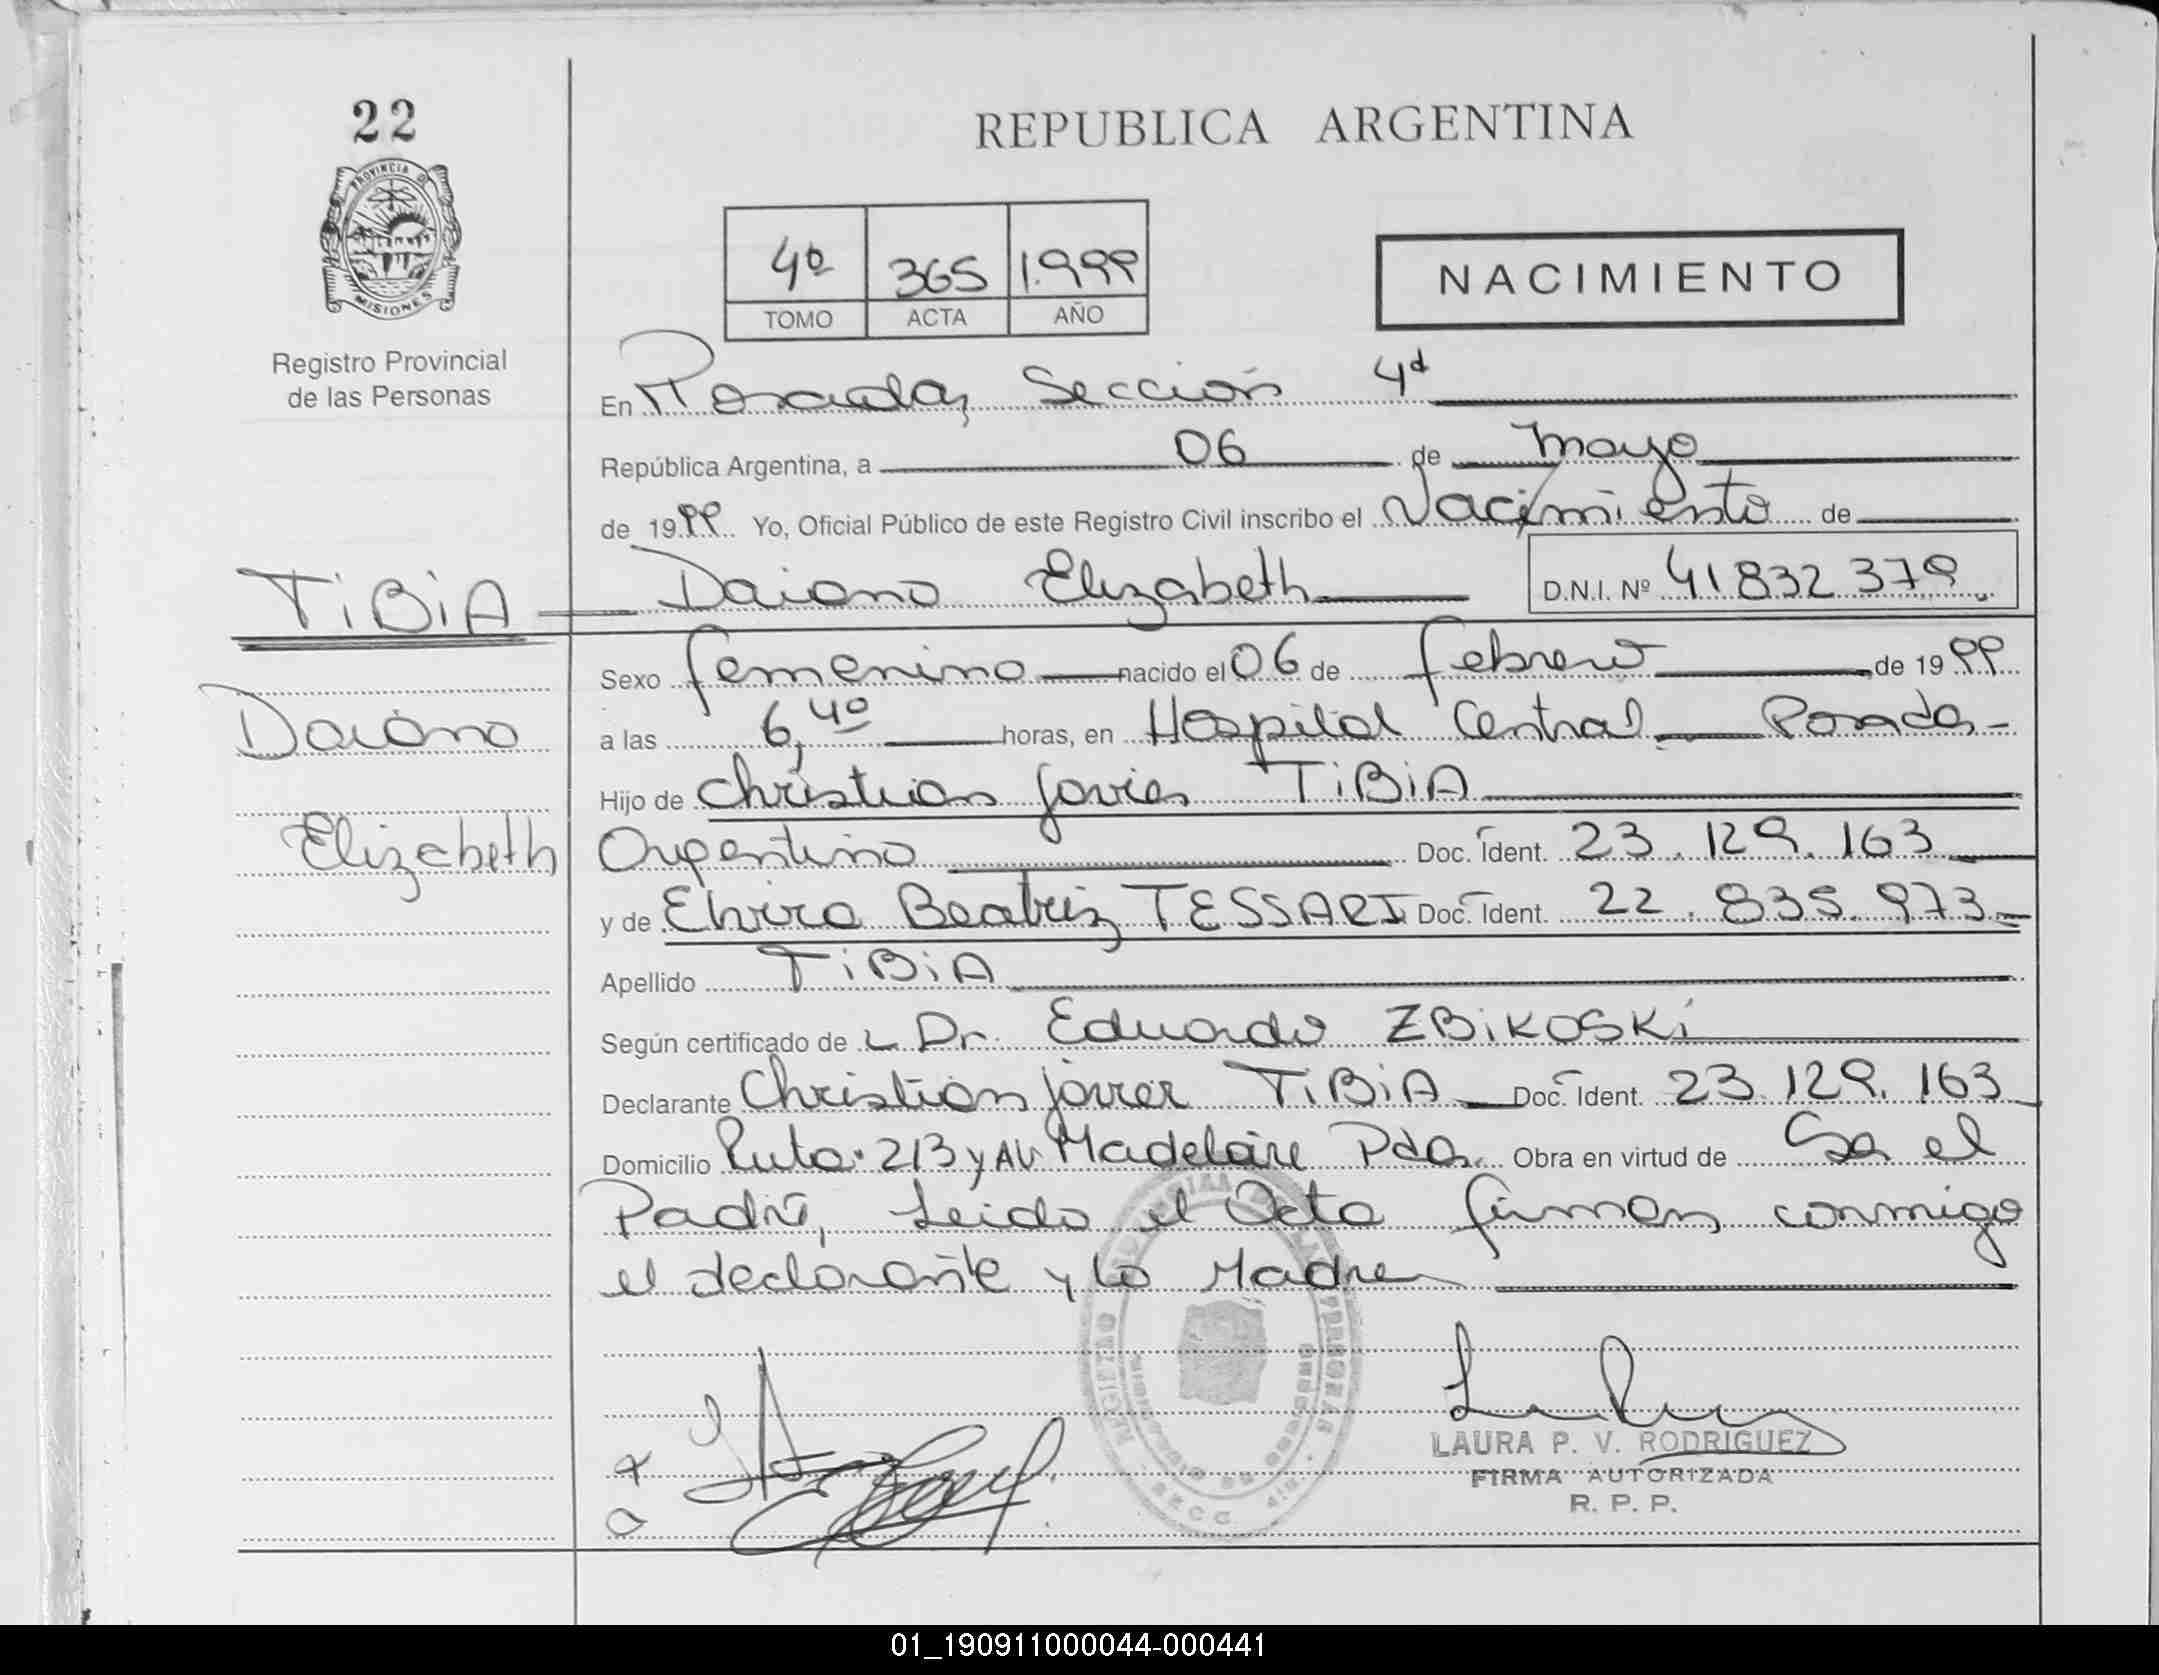 22
PROVINCIA DE
MISIONES
Registro Provincial
de las Personas
REPUBLICA ARGENTINA
4º 365 1.999
TOMO ACTA AÑO
NACIMIENTO
En Posadas, Sección 4ª
República Argentina, a 06 de mayo
de 1999 Yo, Oficial Público de este Registro Civil inscribo el Nacimiento de
TiBiA Daiana Elizabeth D.N.I. Nº 41832379
Sexo femenino nacido el 06 de febrero de 1999
Daiana
a las 6,40 horas, en Hospital Central Posadas
Hijo de Christian Javier TiBiA
Elizabeth
Argentino Doc. Ident. 23.129.163
y de Elvira Beatriz TESSARI Doc. Ident. 22.835.973
Apellido TiBiA
Según certificado de Dr. Eduardo ZBiKOSKi
Declarante Christian Javier TiBiA Doc. Ident. 23.129.163
Domicilio Ruta 213 y AV Madelaire Pdas. Obra en virtud de Ser el
Padre, Leida el Acta firman conmigo
el declarante y la Madre
LAURA P. V. RODRIGUEZ
FIRMA AUTORIZADA
R. P. P.
01_190911000044-000441